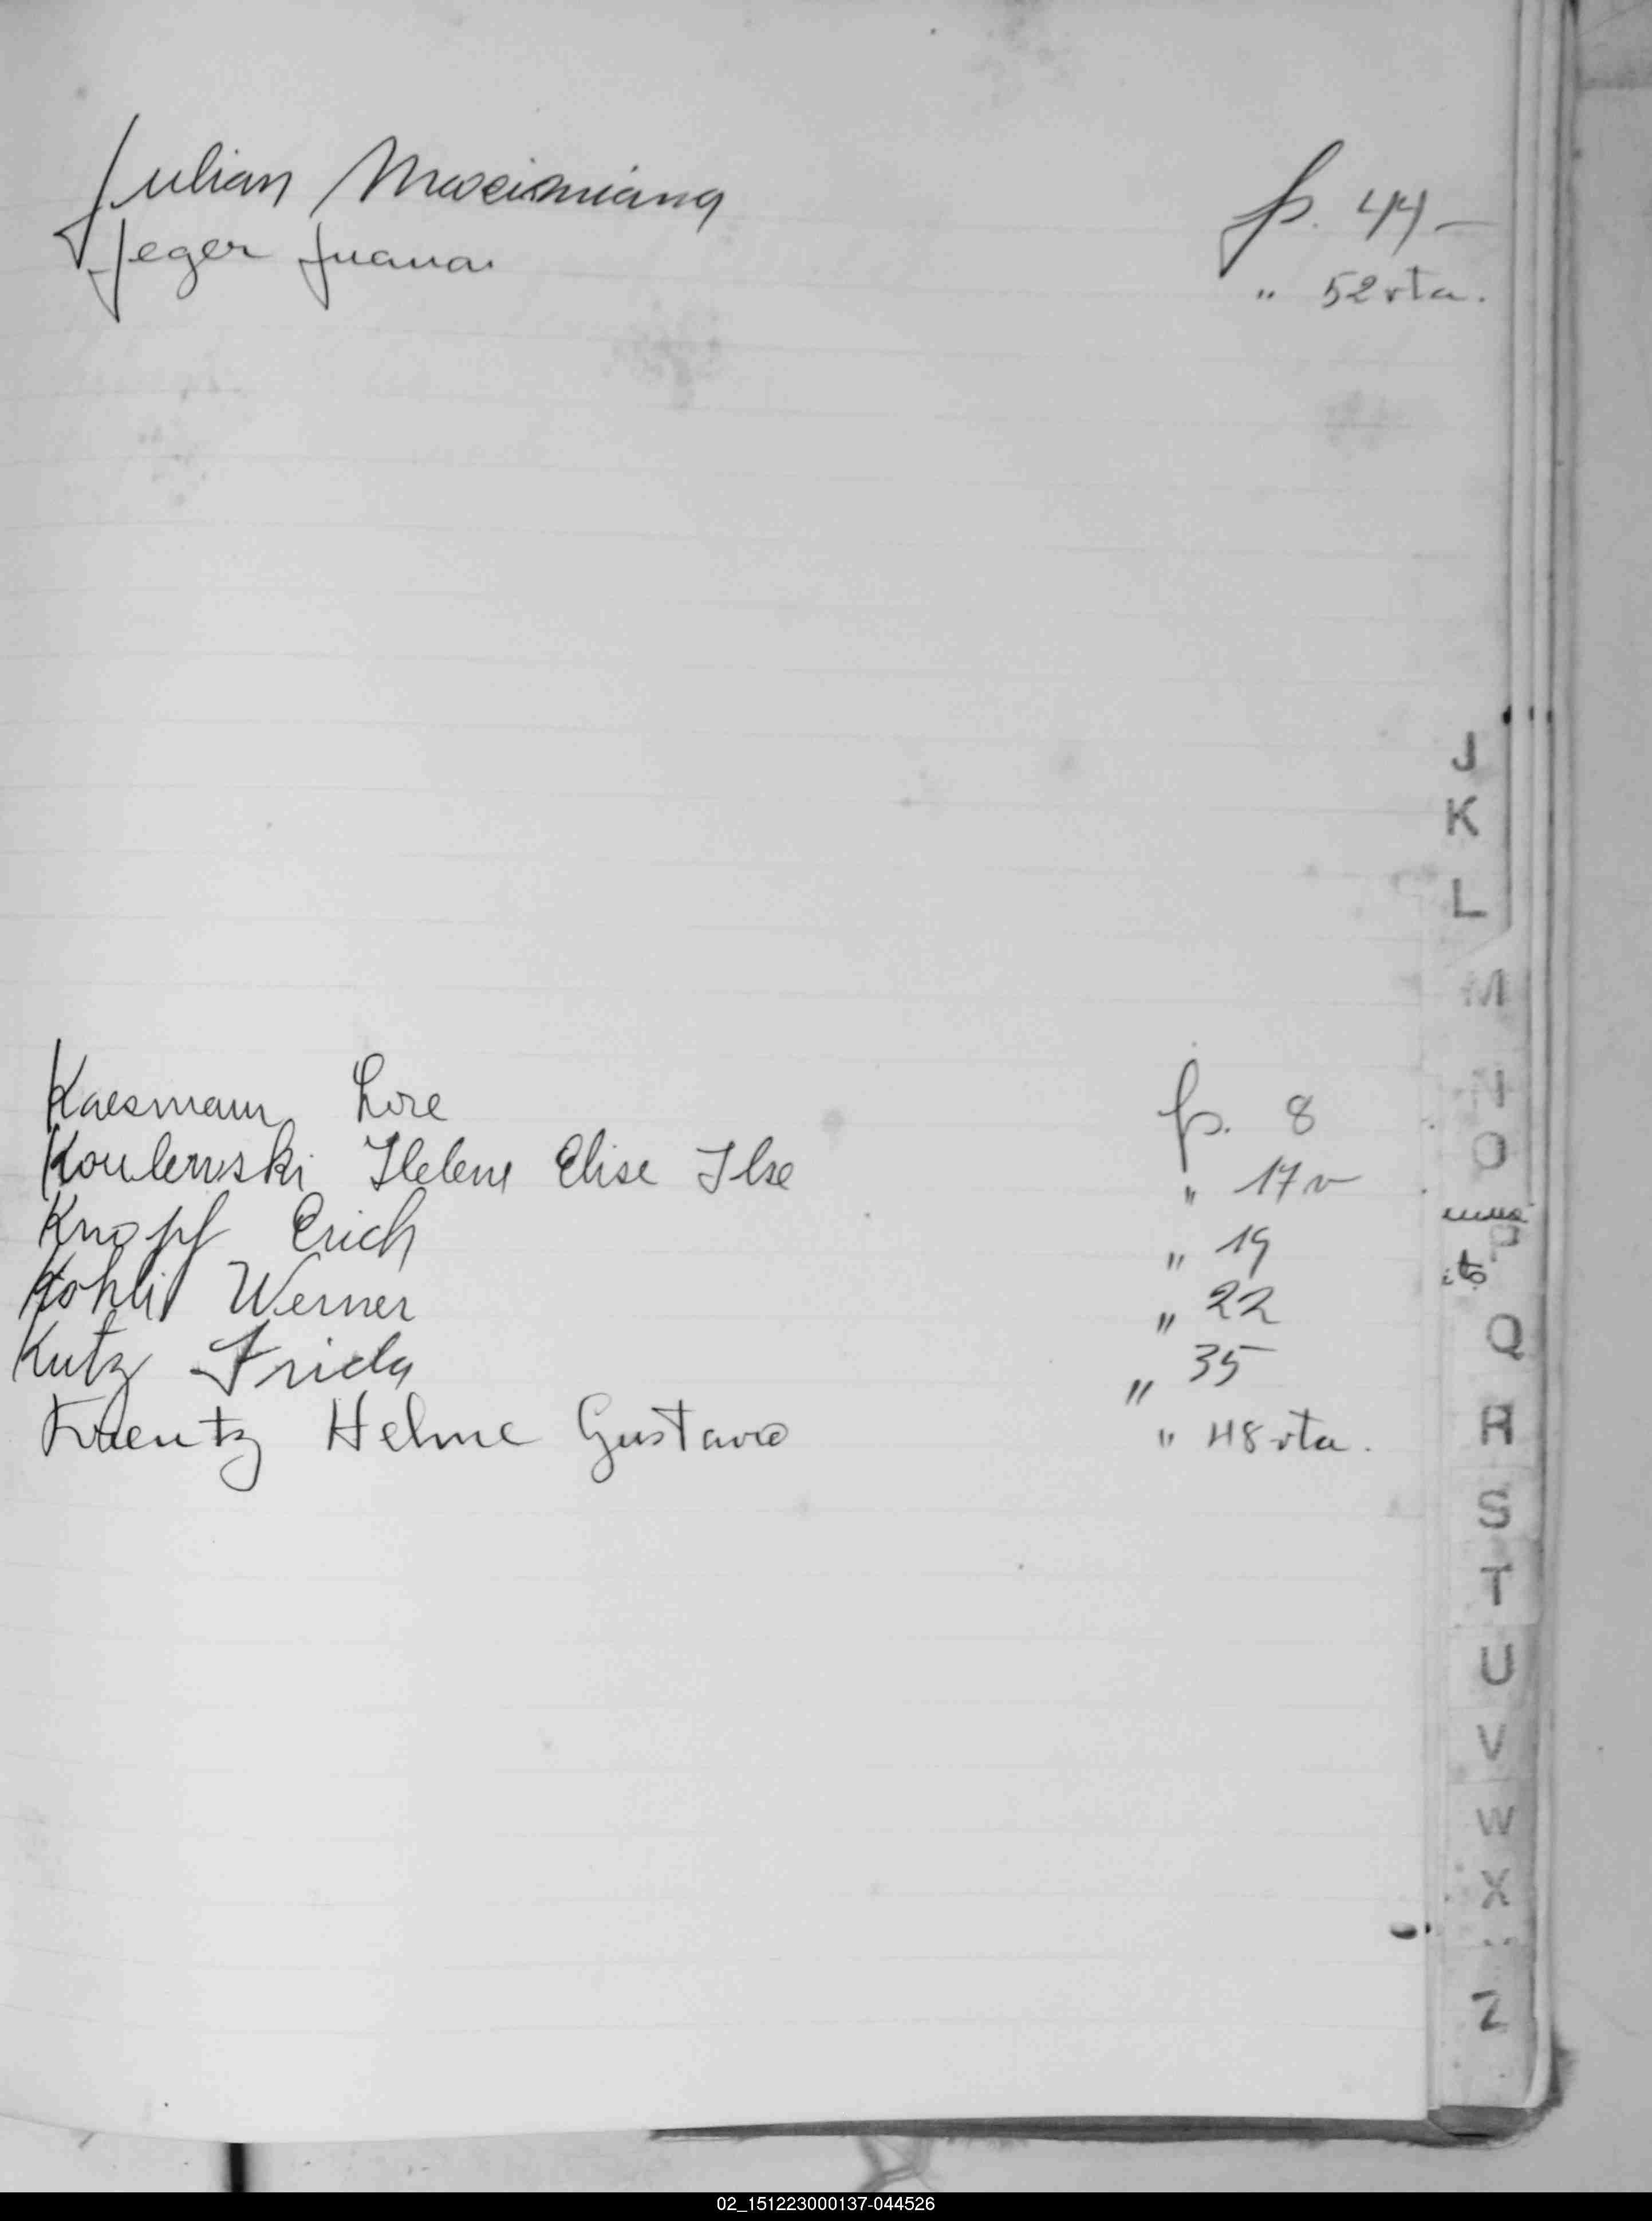 Julian Maximiana fs. 44-
Jeger Juana. " 52 vta.
Kaesmann, Lore fs. 8
Koulewski Helene Elise Ilse " 17 v
Knopf Erich " 19
Kohli Werner " 22
Kutz Frida " 35
Kuentz Helme Gustavo " 48 vta.
J
K
L
M
N
O
P
Q
R
S
T
U
V
W
X
Z
02_151223000137-044526